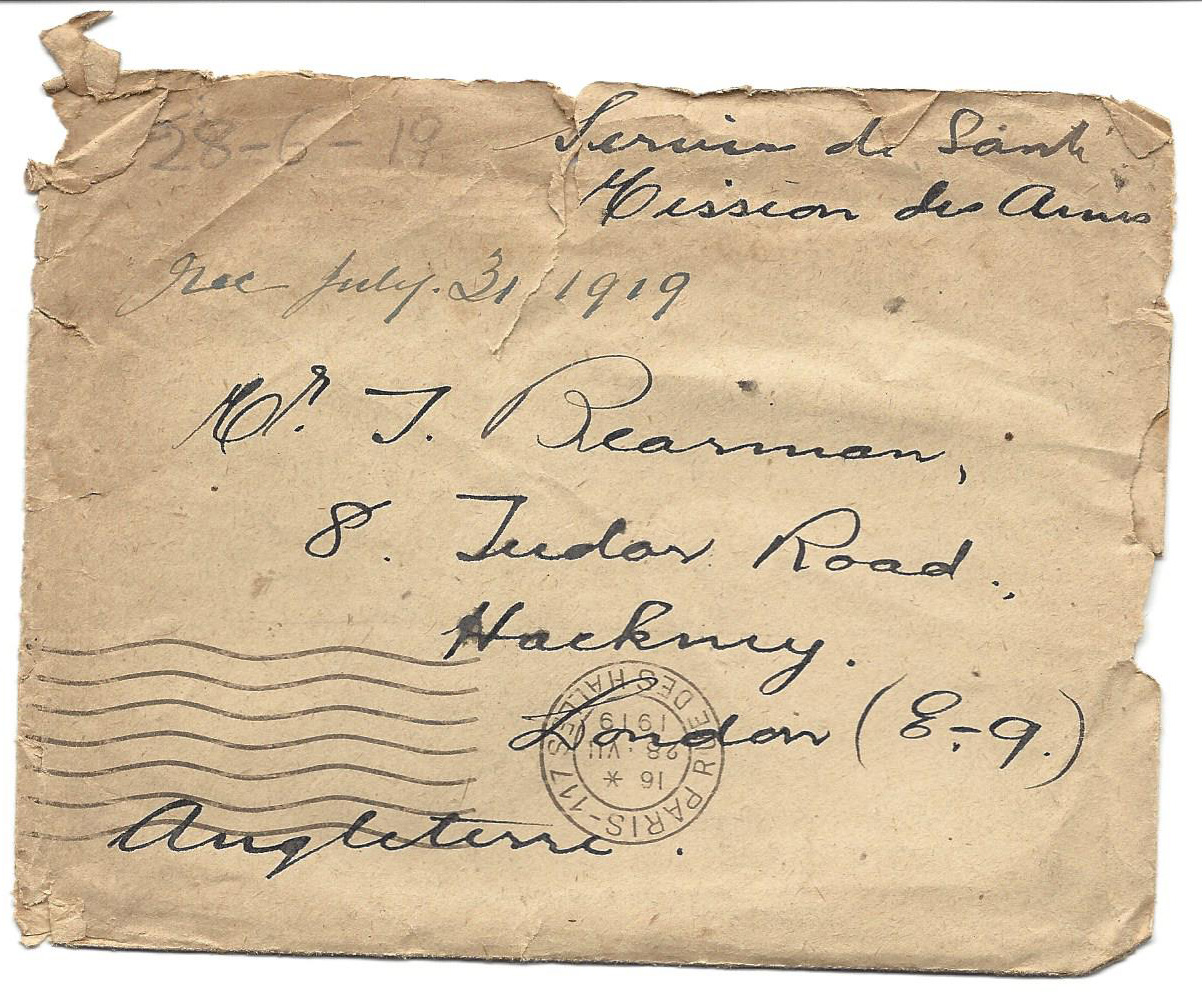 28-6-19
Service de Santé
Mission des Amis
Rec July. 31 1919
Mr. T. Bearman,
8. Tudor Road.,
Hackney.
London (E-9.)
Angleterre.
PARIS-117 RUE DES HALLES
16 *
28 · VII
1919